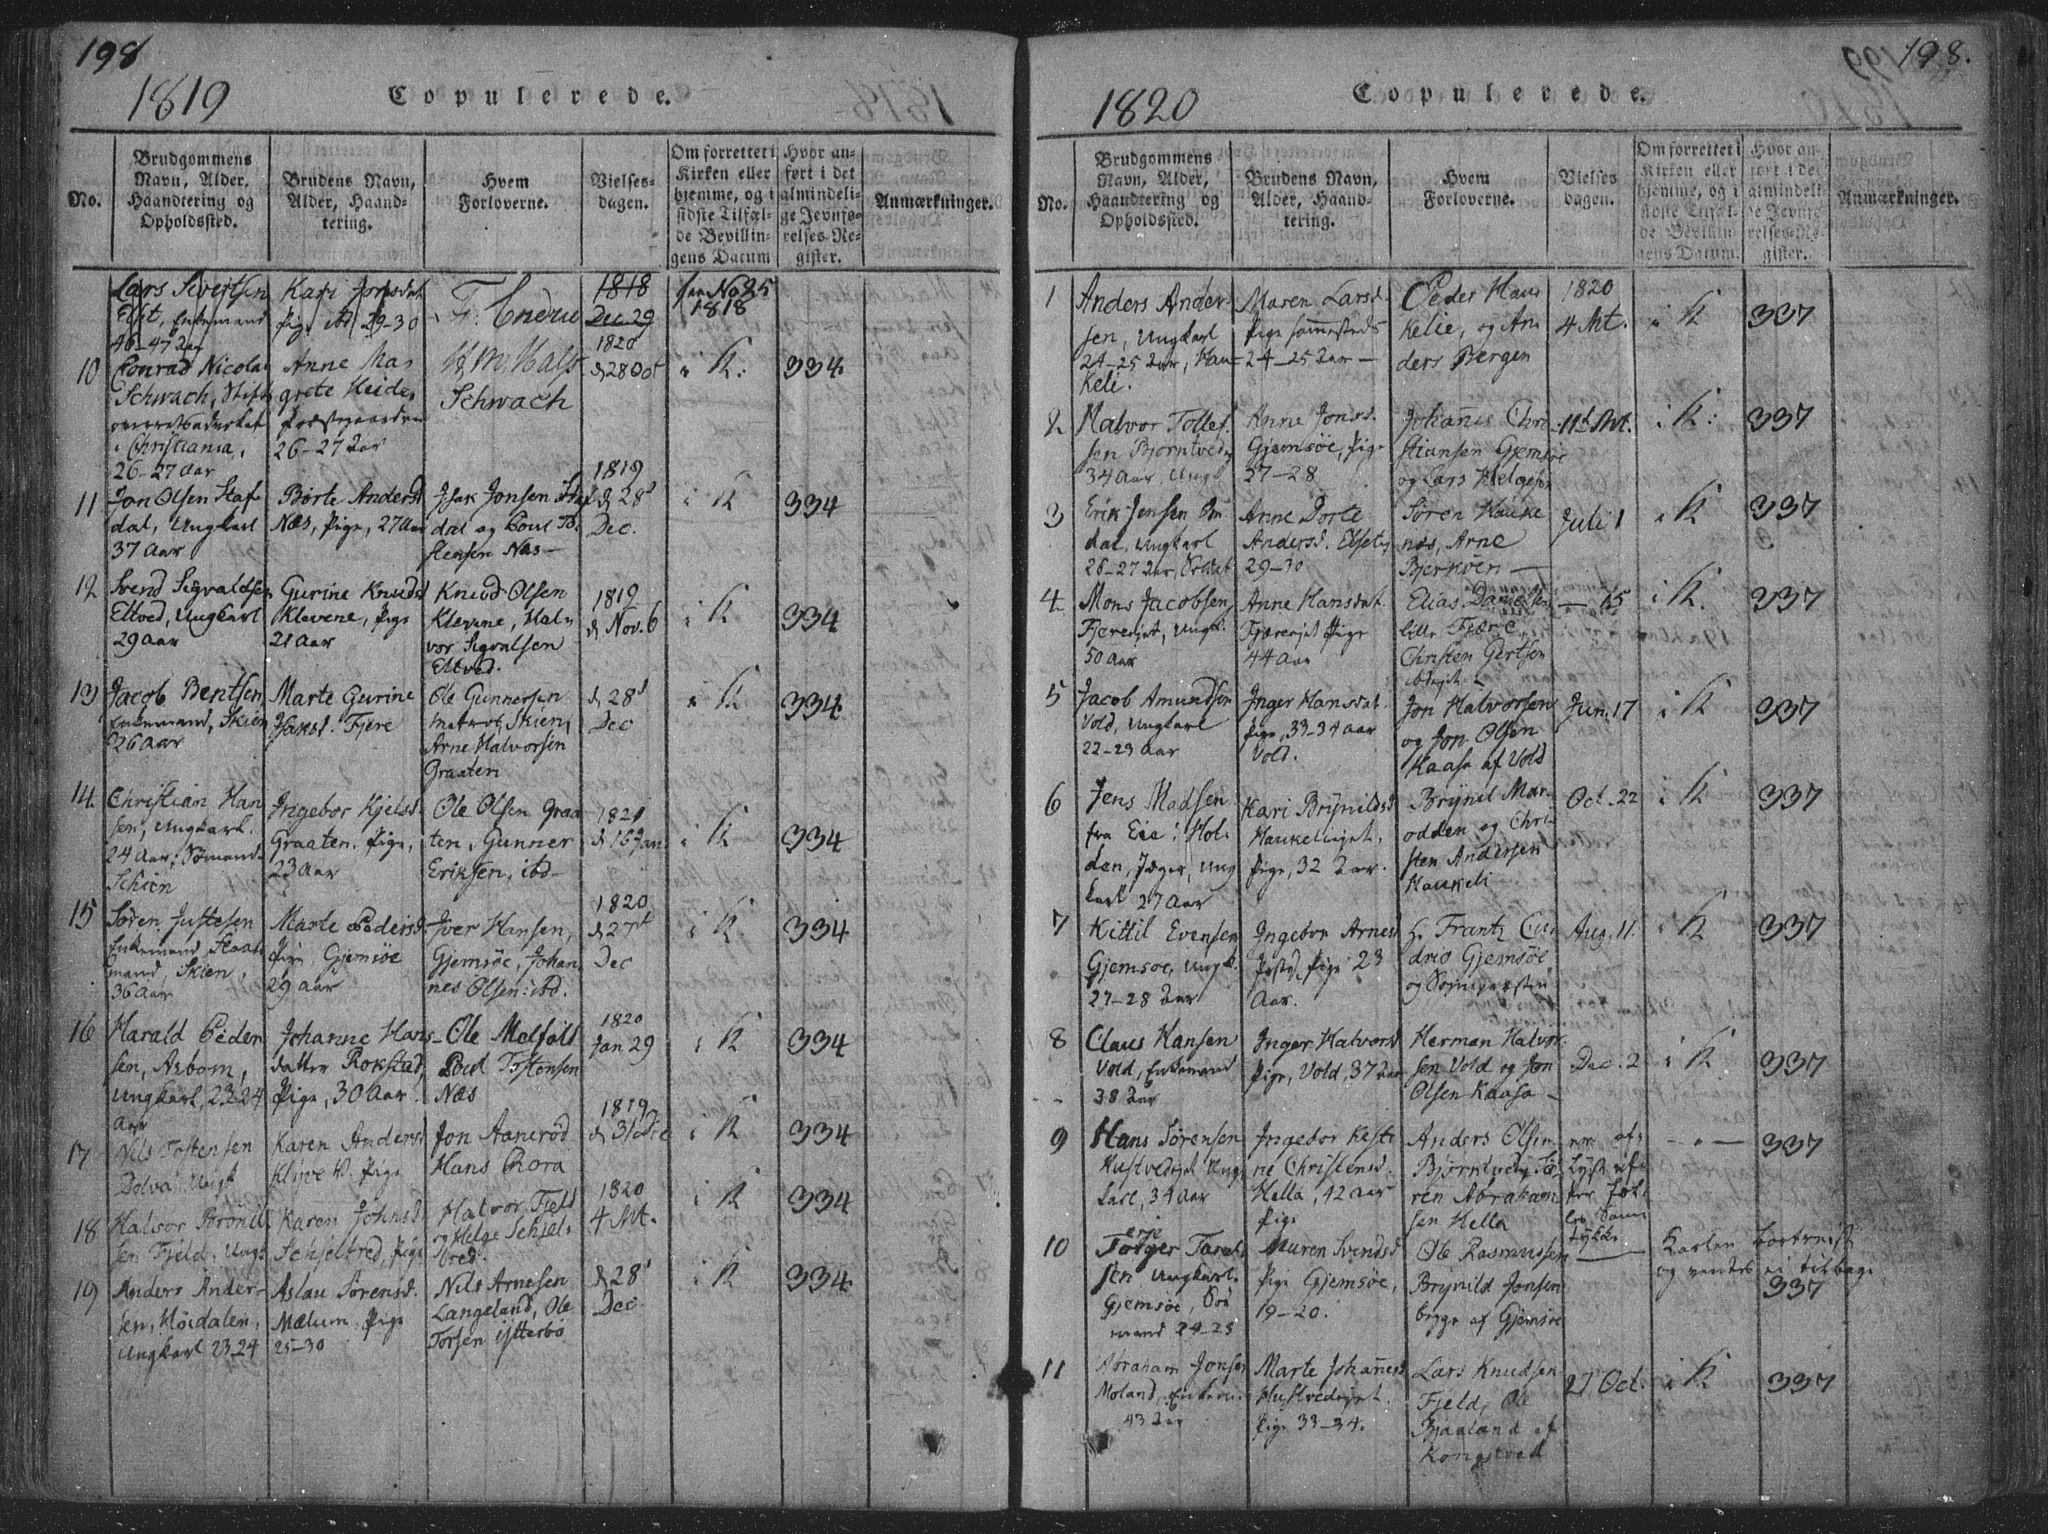 198
1819 Copulerede.
No.
Brudgommens
Navn, Alder,
Haandtering og
Opholdssted.
Brudens Navn,
Alder, Haand-
tering.
Hvem
Forloverne.
Vielses-
dagen.
Om forrettet i
Kirken eller
hjemme, og i
sidste Tilfæl-
de Bevillin-
gens Datum
Hvor an-
ført i det
almindeli-
ge Jevnfø-
relses-Re-
gister.
Anmærkninger.
Lars Sivertsen
Enkemand
46-47 Aar
Kari Jonsdat.
Pige ibd 29-30
1818
Dec. 29
No 25
1818
10
Conrad Nicolai
Schwach, Stifts
overretsadvokat
i Christiania,
26-27 Aar
Anne Mar
grete Heide,
Præstegaarden
26-27 Aar
Schwach
1820
d 28 Oct
K.
334
11
Jon Olsen Staf
dal, Ungkarl
37 Aar
Børte Andersd
Næs, Pige, 27 Aar
Isak Jonsen Staf
dal og Poul To-
stensen Næs —
1819
d 28d
Dec.
i K
334
12
Svend Sigvaldsen
Eltved, Ungkarl
29 Aar
Gurine Knuds
Klevene, Pige
21 Aar
Knud Olsen
Klevene, Hal-
vor Sigvalsen
Eltved.
1819
d Nov. 6
i K
334
13
Jacob Bentsen
Enkemand, Skien
26 Aar
Marte Gurine
Jakobd. Fjere
Ole Gunnersen
matros, Skien,
Arne Halvorsen
Graaten
d 28d
Dec
K
334
14
Christian Han
sen, Ungkarl.
24 Aar, Sømand
Schien
Ingebor Kjelsd.
Graaten, Pige,
23 Aar
Ole Olsen Graa
ten, Gunner
Eriksen, ibd
1821
d 16 Jan
i K
334
15
Søren Justesen
Enkemand,
mand, Skien,
36 Aar
Marte Pedersd
Pige, Gjemsøe
29 Aar
Iver Hansen,
Gjemsøe, Johan
nes Olsen ibd.
1820
d 27d
Dec
i K
334
16
Harald Peder
sen, Aasbom,
Ungkarl, 23.24
Aar
Johanne Hans
datter Rokstad,
Pige, 30 Aar.
Ole Melfald
Poul Tostensen
Næs
1820
Jan 29
i K
334
17
Nils Tostensen
Dolva Ungk
Karen Andersd
Klyve V. Pige
Jon Aanerød
Hans Rora
1819
d 31 Dec
i K
334
18
Halvor Brønil
sen Fjeld, Ungk
Karen Johnsd
Schjelbred, Pige
Halvor Fjeld
og Helge Schjel-
bred.
1820
4 Mt.
i K
334
19
Anders Ander-
sen, Høidalen,
Ungkarl 23.24
Aslau Sørensd.
Mælum, Pige
25-30
Nils Arnesen
Langeland, Ole
Torsen Ytterbø
d 28d
Dec
i K
334
198.
1820 Copulerede.
No.
Brudgommens
Navn, Alder,
Haandtering og
Opholdssted.
Brudens Navn,
Alder, Haand-
tering.
Hvem
Forloverne.
Vielses-
dagen.
Om forrettet i
Kirken eller
hjemme, og i
sidste Tilfæl-
de Bevillin-
gens Datum.
Hvor an-
ført i det
almindeli-
ge Jevnfø-
relses-Re-
gister.
Anmærkninger.
1
Anders Ander-
sen, Ungkarl
24-25 Aar, Hau-
keli.
Maren Larsd.
Pige sammesteds
24-25 Aar —
Peder Hau
kelie, og An
ders Bergen
1820
4 Mt.
i K
337
2
Halvor Tollef
sen Bjørntvedt
34 Aar, Ungk
Anne Jonsd.
Gjemsøe, Pige
27-28
Johannes Chri
stiansen Gjemsøe
og Lars Helgesen
11d Mt.
i K.
337
3
Erik Jensen
dal, Ungkarl
26-27 Aar, Soldat
Anne Dorte
Andersd.
29-30
Søren Hauke
næs, Arne
Bjerkøen —
Juli 1
i K
337
4
Mons Jacobsen
Fjereejet, Ungk.
50 Aar
Anne Hansdat.
Fjæreejet Pige
44 Aar
Elias Danielsen
lille Fjære,
Christen Gertsen
— 15
i K.
337
5
Jacob Amundsen
Vold, Ungkarl
22-23 Aar
Inger Hansdat.
Pige, 33-34 Aar
Vold.
Jon Halvorsen
og Jon Olsen
Kaasa af Vold
Jun. 17
i K
337
6
Jens Madsen
fra Eie i Hol-
den, Jæger, Ung
karl 27 Aar
Kari Brynildsd
Haukeliejet,
Pige, 32 Aar.
Brynil Mar-
odden og Chri-
sten Andersen
Haukeli
Oct. 22
i K
337
7
Kittil Evensen
Gjemsøe, Ungk.
27-28 Aar
Ingebor Arnesd
Pige 23
Aar.
Hr. Frantz Cu
drio Gjemsøe
og
Aug. 11.
i K
337
8
Claus Hansen
Vold, Enkemand
38 Aar
Inger Halvorsd
Pige, Vold, 37 Aar
Herman Halvor
sen Vold og Jon
Olsen Kaasa —
Dec. 2
i K
337
9
Hans Sørensen
Hustvedejet Ung
karl, 34 Aar
Ingebor Kesti
ne Christensd.
Hella, 42 Aar
Pige
Anders Olsen
Bjørntvedt, Sø-
ren Abraham
sen Hella
— „ —
337
10
Terje
Torger Tarals
sen Ungkarl.
Gjemsøe, Sø
mand 24-25
Maren Svendsd
Pige Gjemsøe,
19-20.
Ole Rasmussen
Brynild Jonsen
begge af Gjemsøe
Karlen bortreist
og ventes ei tilbage
337
11
Abraham Jonsen
Moland, Enkem.
43 Aar
Marte Johannesd
Hustvedejet.
Pige 33-34.
Lars Knudsen
Fjeld, Ole
Bjaaland af
Kongstved
27 Oct.
i K
337